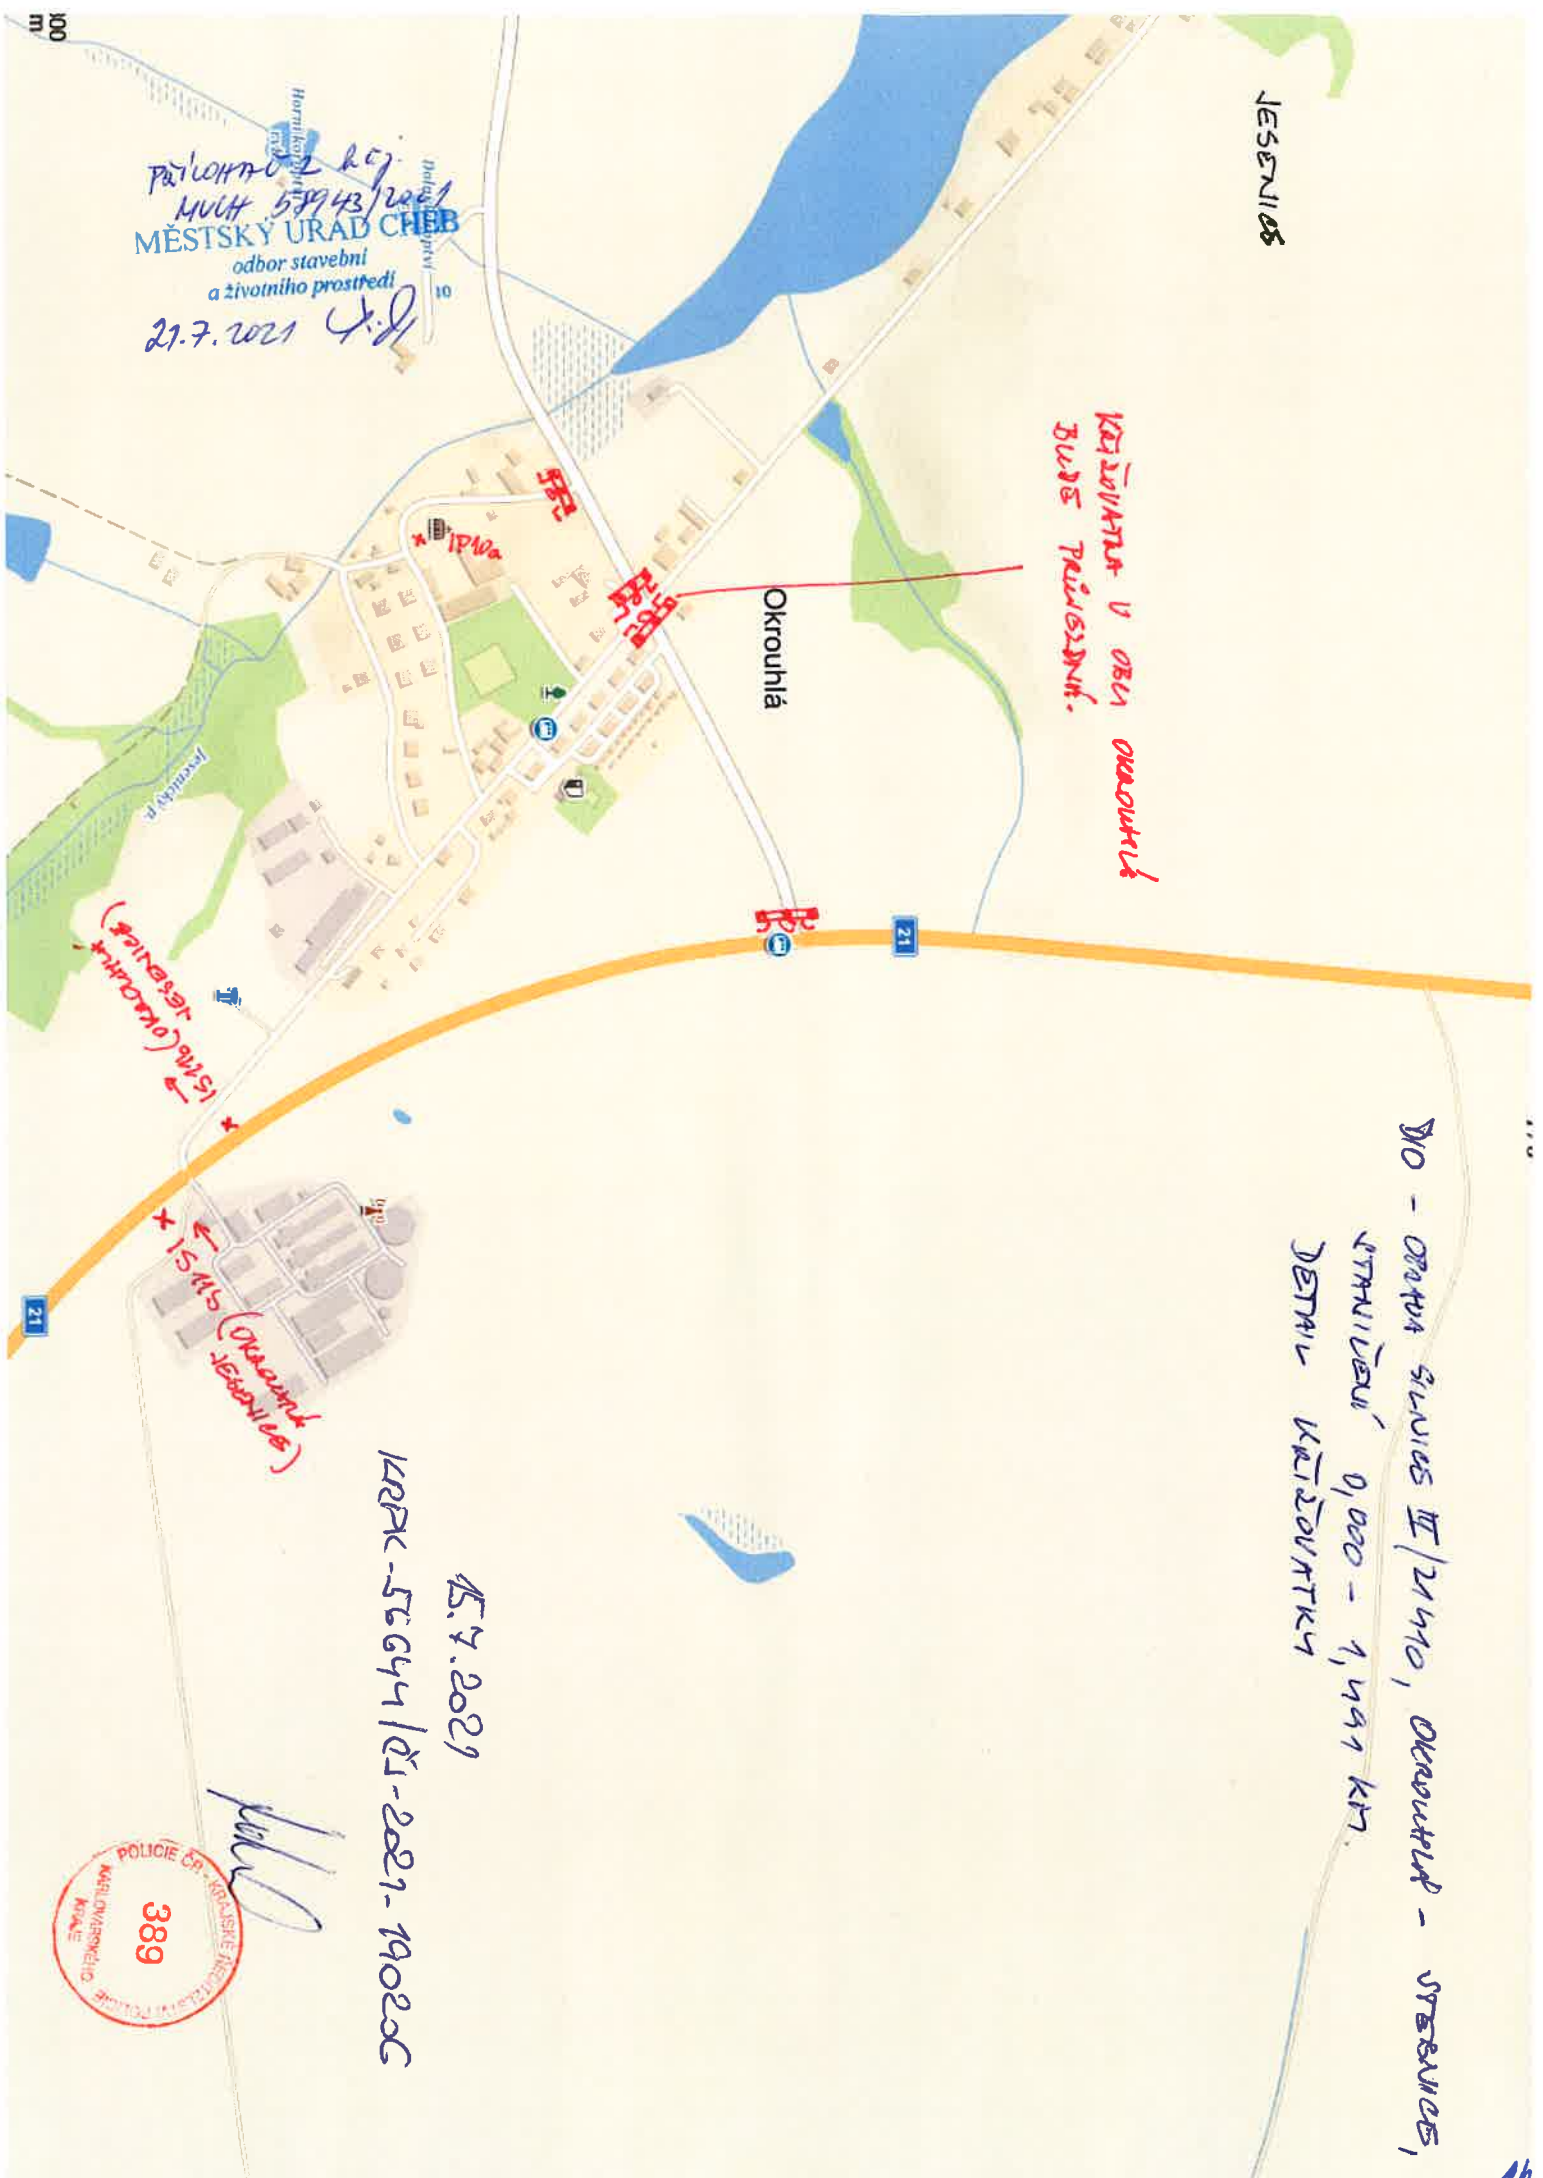 DIO - OPRAVA SILNICE III/21410, OKROUHLÁ - STEBNICE,
STANIČENÍ 0,000 - 1,491 KM.
DETAIL KŘIŽOVATKY
JESENICE
KŘIŽOVATKA V OBCI OKROUHLÁ
BUDE PRŮJEZDNÁ.
Okrouhlá
21
IP10a
IS11b (OKROUHLÁ
JESENICE)
IS11b (OKROUHLÁ
JESENICE)
21
Jesenický p.
15.7.2021
KRPK-56644/ČJ-2021-190206
POLICIE ČR - KRAJSKÉ ŘEDITELSTVÍ POLICIE
KARLOVARSKÉHO
KRAJE
389
PŘÍLOHA Č 2 k čj.
MUCH 57943/2021
MĚSTSKÝ ÚŘAD CHEB
odbor stavební
a životního prostředí
21.7.2021
10
00
m